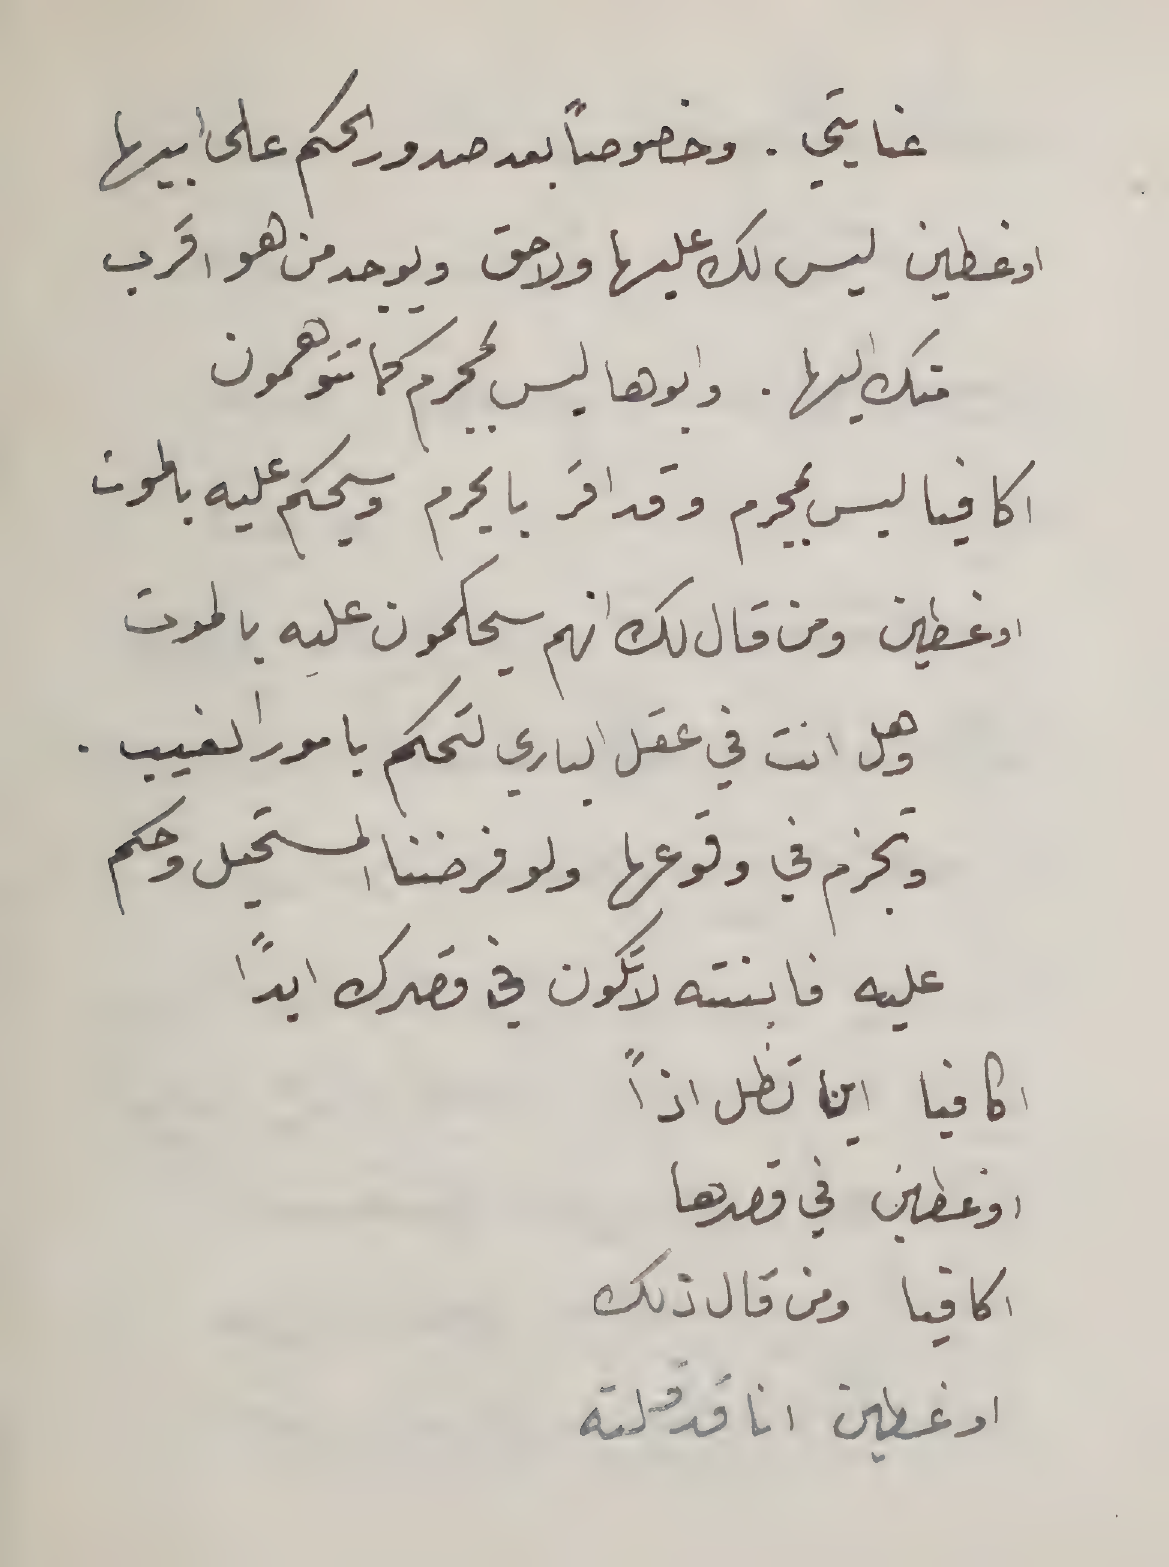 عنايتي . وخصوصاً بعد صدور الحكم على ابيها
اوغطين ليس لك عليها ولا حق ويوجد من هو اقرب
منك اليها . وابوها ليس بمجرم كما تتوهمون
اكافيا ليس بمجرم وقد اقر بالجرم وسيحكم عليه بالموت
اوغطين ومن قال لك انهم سيحكمون عليه بالموت
وهل انت في عقل الباري لتحكم بامور الغيب .
وتجزم في وقوعها ولو فرضنا المستحيل وحكم
عليه فابنته لا تكون في قصرك ابداً
اكافيا اين تظل اذاً
اوغطين في قصرها
اكافيا ومن قال ذلك
اوغطين انا قد قلته